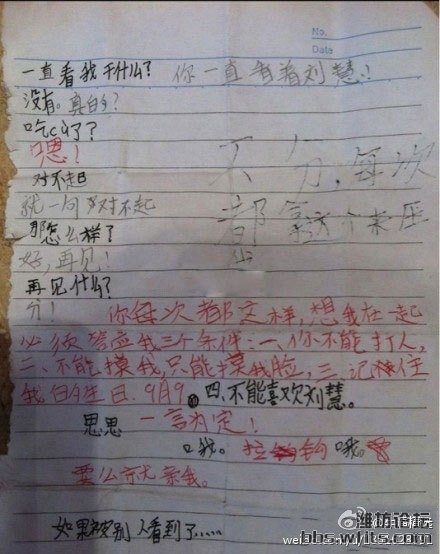 No.
Date
一直看我干什么？ 你一直看着刘慧！
没有。真的？
吃c了？
嗯！
对不起
就一句对不起
那怎么样了
好，再见！
再见什么？
分！
不分，每次
都拿这个来压
你每次都这样，想我在一起
必须答应我三个条件：一、你不能打人，
二、不能摸我，只能摸我脸，三、记住
我的生日.9月9.四、不能喜欢刘慧。
思思 一言为定！
口我。 拉钩 哦。
要么亲我。
如果被别人看到了.....
潍坊论坛
bbs.wfits.com